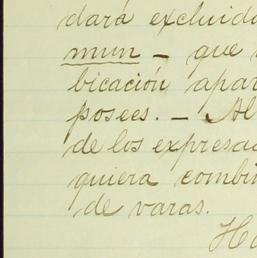 dará excluido
mun – que
bicación apar
posees. – Al
de los expresad
quiera combin
de varas.
Ha